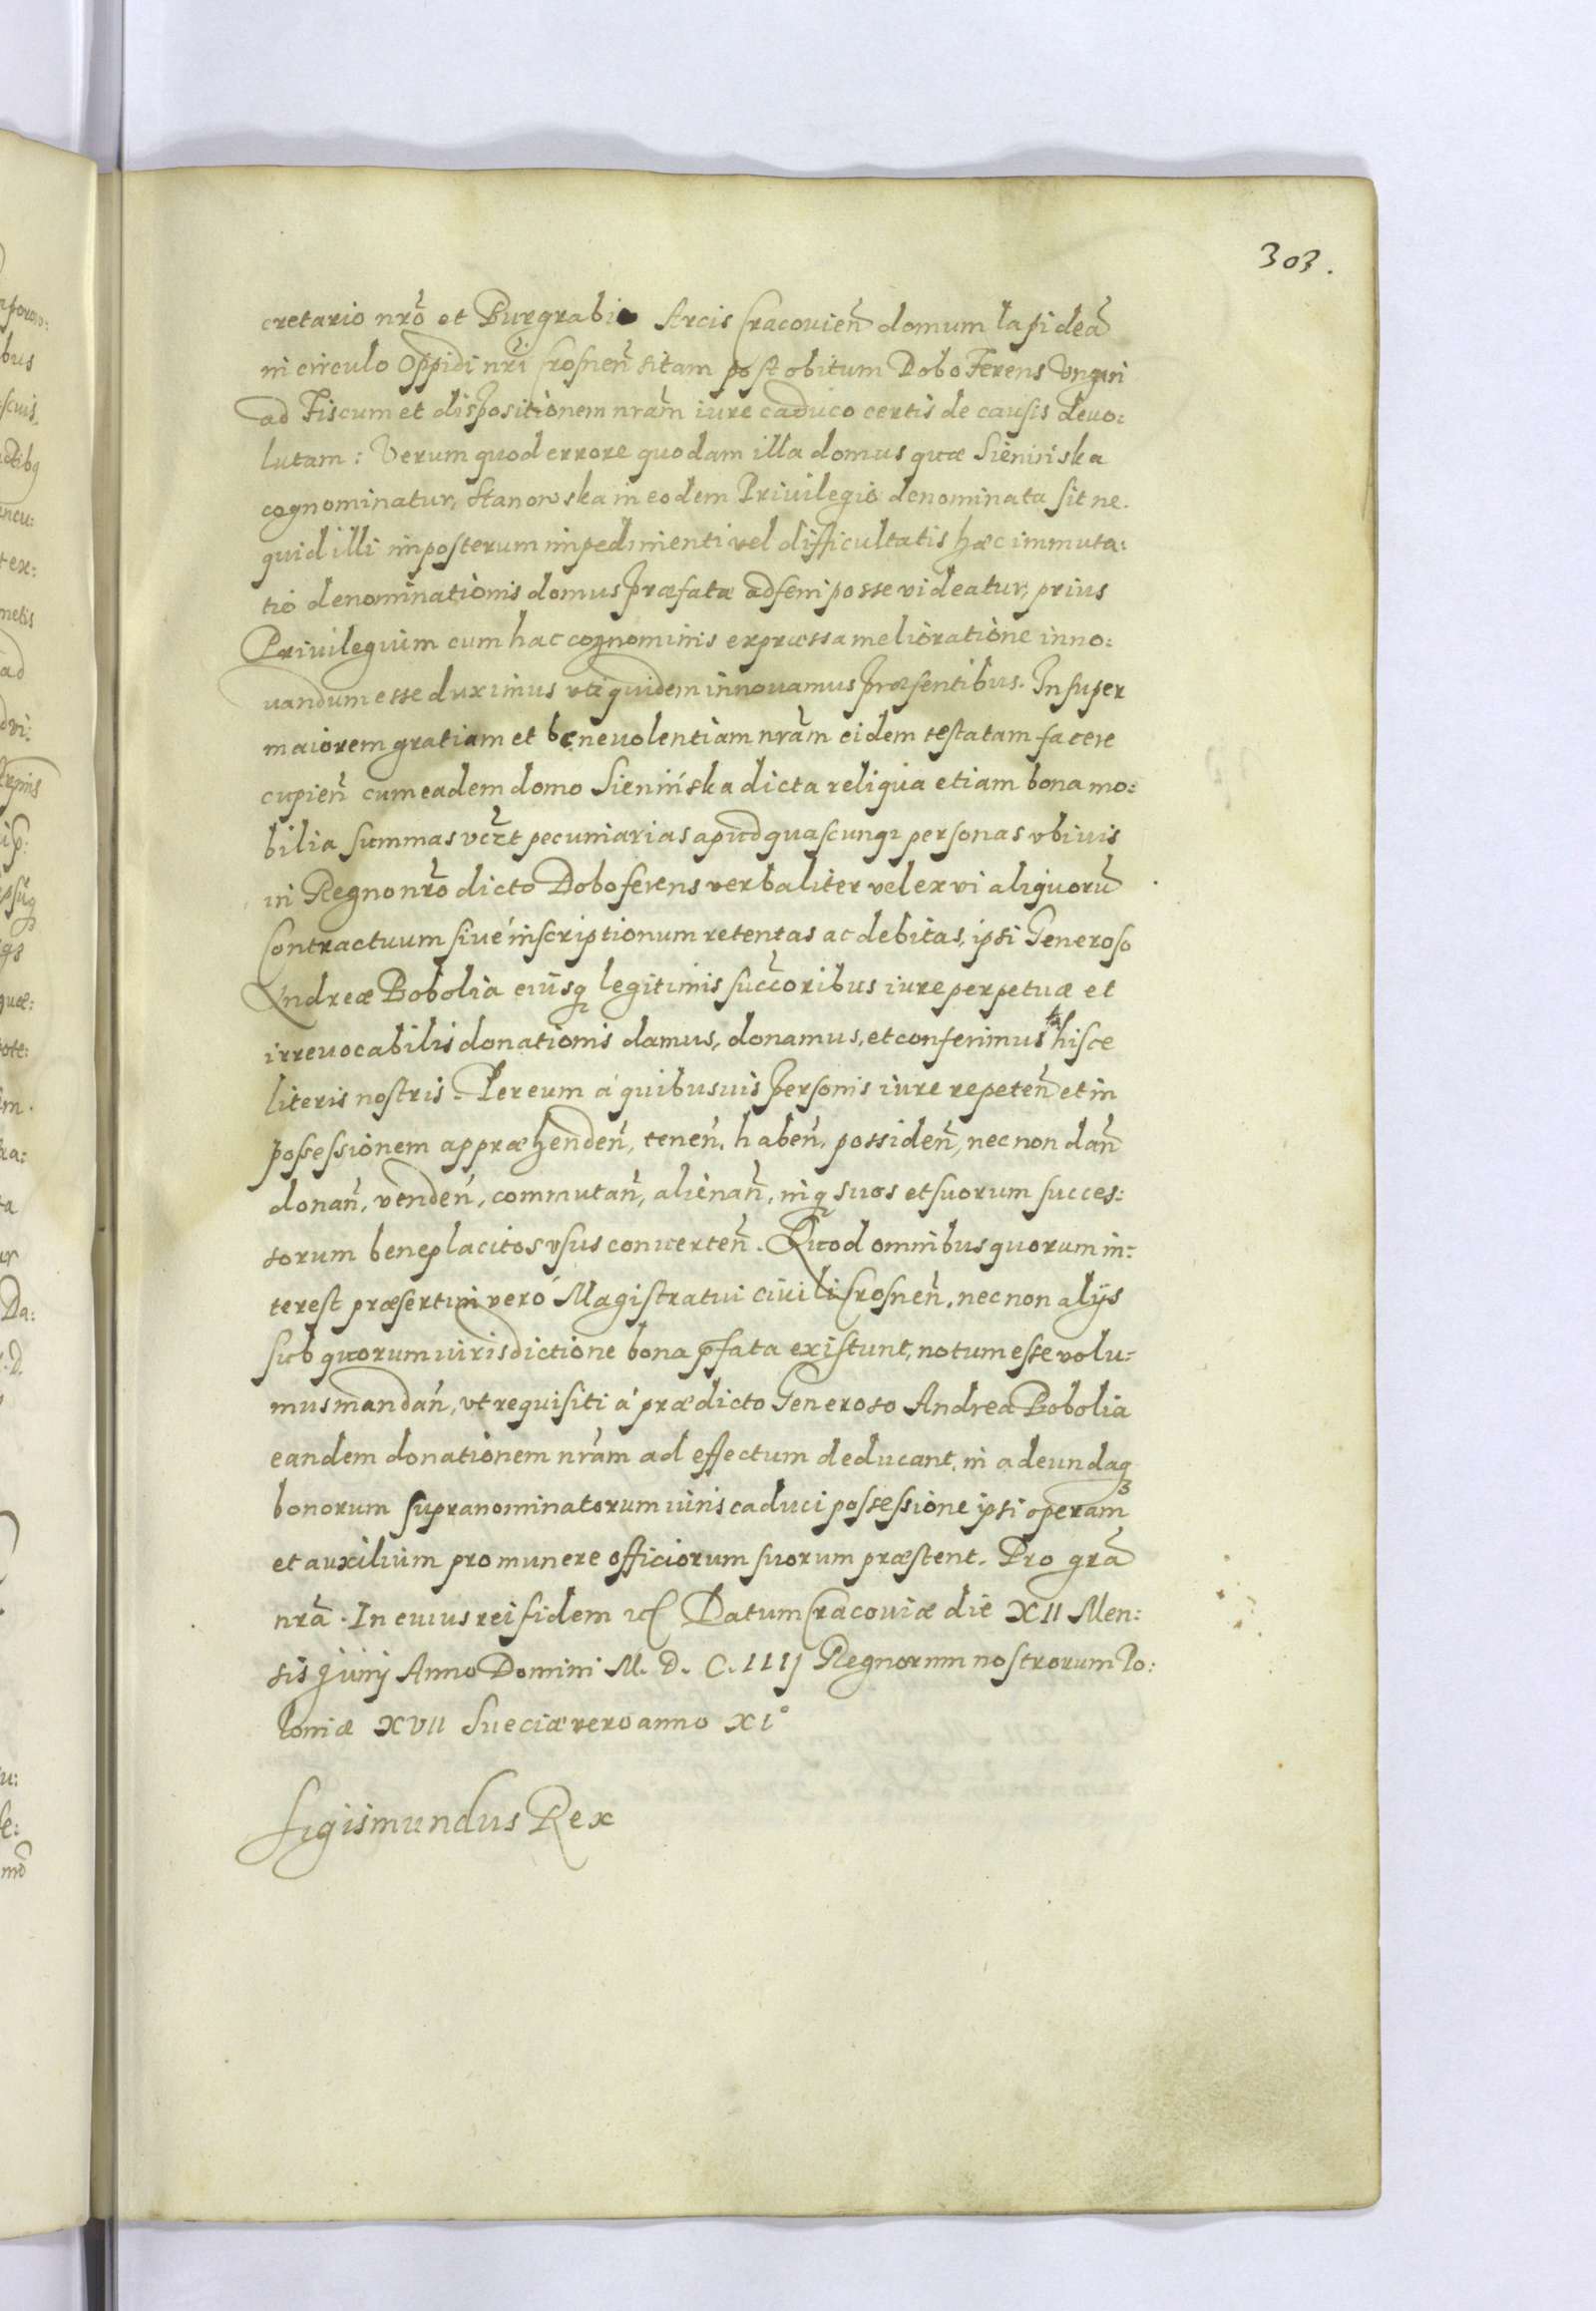 303.
cretario nr̃o et Burgrabio Arcis Cracovien̄ domum lapideā
in circulo Oppidi nr̃i Crosnen̄ sitam post obitum Dobo Ferens Vngari
ad Fiscum et dispositionem nrãm iure caduco certis de causis devo:
lutam: Verum quod errore quodam illa domus quæ Sieninska
cognominatur, Stanowska in eodem Privilegio denominata sit ne
quid illi in posterum impedimenti vel difficultatis hæc immuta:
tio denominationis domus præfatæ adferri posse videatur, prius
Privilegium cum hac cognominis expræssa melioratione inno:
vandum esse duximus uti quidem innovamus præsentibus. Insuper
maiorem gratiam et benevolentiam nrãm eidem testatam facere
cupien̄ cum eadem domo Sienińska dicta reliqua etiam bona mo:
bilia summas vcz̃t pecuniarias apud quascunqz personas vbivis
in Regno nr̃o dicto Doboferens verbaliter vel ex vi aliquorū
Contractuum sivé inscriptionum retentas ac debitas, ipsi Generoso
Andreæ Bobolia eiusq legitimis succ̃oribus iure perpetuæ et
irrevocabilis donationis damus, donamus, et conferimus hisce
literis nostris. Per eum á quibusvis personis iure repeten̄ et in
possessionem appræhenden̄, tenen̄, haben̄, possiden̄, nec non dan̄
donan̄, venden̄, commutan̄, alienan̄, inq suos et suorum succes:
sorum beneplacitos vsus converten̄. Quod omnibus quorum in:
terest præsertim veró Magistratui civili Crosnen̄, nec non alijs
sub quorum iurisdictione bona p̄fata existunt, notum esse volu:
mus mandan̄, vt requisiti á prædicto Generoso Andrea Bobolia
eandem donationem nrãm ad effectum deducant, in adeundaqz
bonorum supranominatorum iuris caduci possessione ipsi operam
et auxilium pro munere officiorum suorum præstent. Pro grã
nrã. In cuius rei fidem etc Datum Cracoviæ die XII Men:
sis Junij Anno Domini M. D. C. IIIj Regnorum nostrorum Po:
loniæ XVII Sueciæ vero anno XI°
Sigismundus Rex